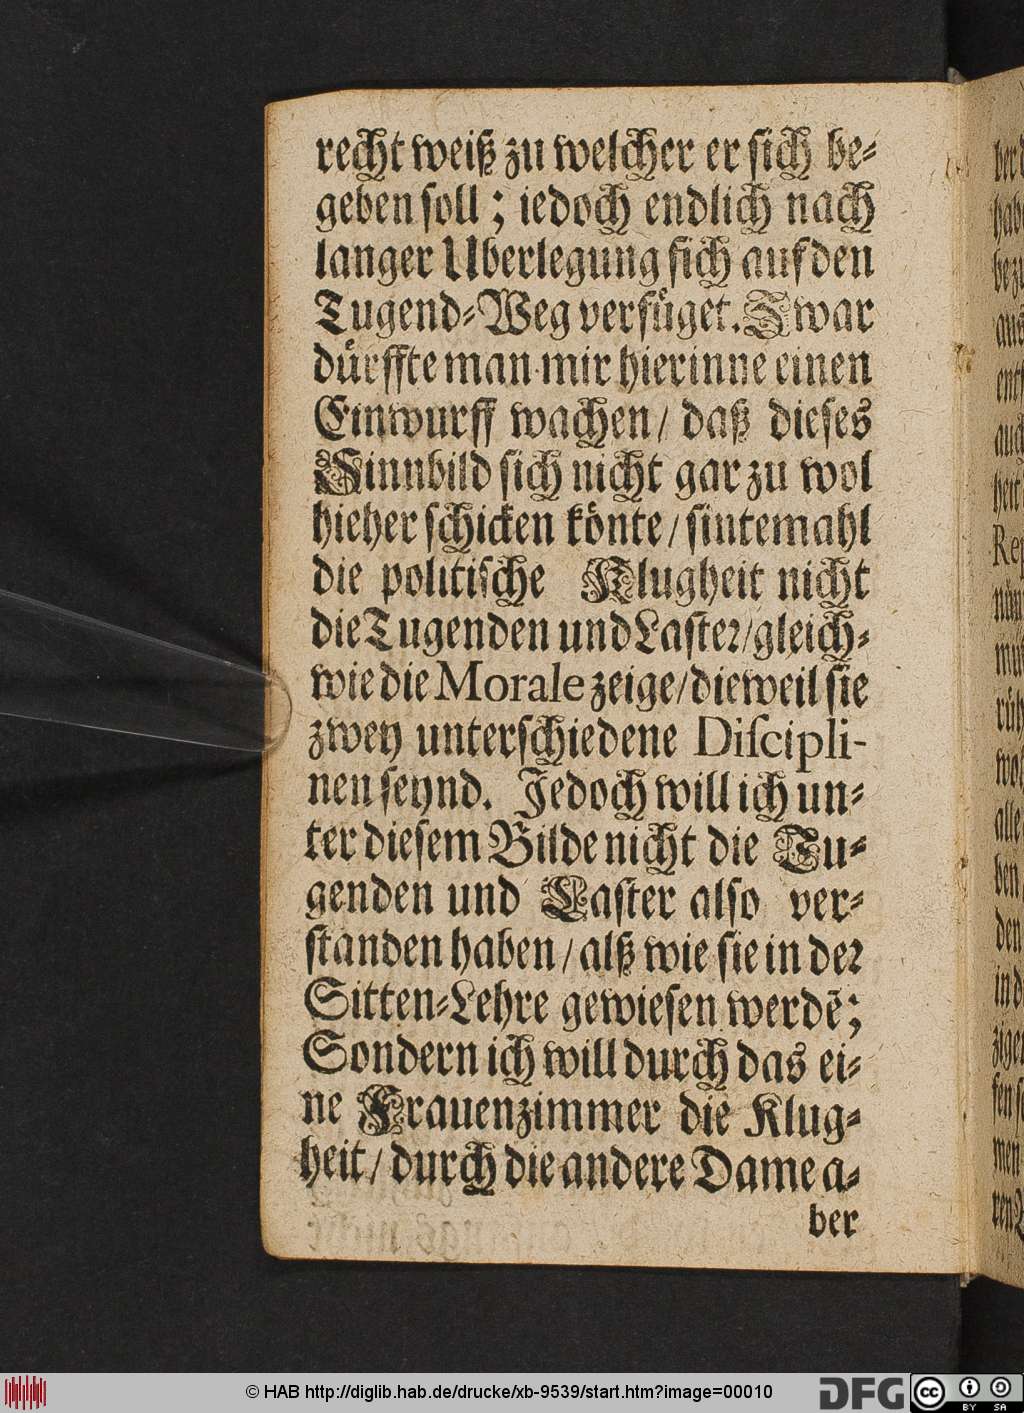 recht weiß zu welcher er sich be-
geben soll; iedoch endlich nach
langer Uberlegung sich auf den
Tugend-Weg verfüget. Zwar
dürffte man mir hierinne einen
Einwurff wachen/ daß dieses
Sinnbild sich nicht gar zu wol
hieher schicken könte/ sintemahl
die politische Klugheit nicht
die Tugenden und Laster/gleich-
wie die Morale zeige/dieweil sie
zwey unterschiedene Discipli-
nen seynd. Jedoch will ich un-
ter diesem Bilde nicht die Tu-
genden und Laster also ver-
standen haben/ alß wie sie in der
Sitten-Lehre gewiesen werdē;
Sondern ich will durch das ei-
ne Frauenzimmer die Klug-
heit/ durch die andere Dame a-
ber
© HAB http://diglib.hab.de/drucke/xb-9539/start.htm?image=00010
DFG
cc BY SA